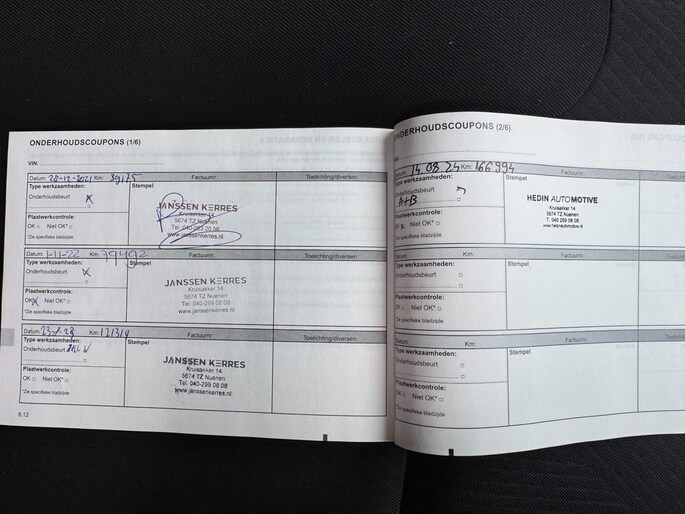 ONDERHOUDSCOUPONS (1/6)
VIN:
Datum: 28-12-2021 Km: 39175 Factuurnr.: Toelichting/diversen
Type werkzaamheden: Stempel
Onderhoudsbeurt x
JANSSEN KERRES
Kruisakker 14
5674 TZ Nuenen
www.janssenkerres.nl
Plaatwerkcontrole:
OK □ Niet OK* □
*Zie specifieke bladzijde
Datum: 1-11-22 Km: 79492 Factuurnr.: Toelichting/diversen
Type werkzaamheden: Stempel
Onderhoudsbeurt x
JANSSEN KERRES
Kruisakker 14
5674 TZ Nuenen
Tel: 040-299 08 08
www.janssenkerres.nl
Plaatwerkcontrole:
OK x Niet OK* □
*Zie specifieke bladzijde
Datum: Km: Factuurnr.: Toelichting/diversen
Type werkzaamheden: Stempel
Onderhoudsbeurt
JANSSEN KERRES
Kruisakker 14
5674 TZ Nuenen
Tel: 040-299 08 08
www.janssenkerres.nl
Plaatwerkcontrole:
OK □ Niet OK* □
*Zie specifieke bladzijde
6.12
ONDERHOUDSCOUPONS (2/6)
Datum: 14.08.24 Km: 166994 Factuurnr.:
Type werkzaamheden: Stempel
Onderhoudsbeurt
A+B
HEDIN AUTOMOTIVE
Kruisakker 14
5674 TZ Nuenen
T. 040 299 08 08
www.hedinautomotive.nl
Plaatwerkcontrole:
OK x Niet OK* □
*Zie specifieke bladzijde
Datum: Km: Factuurnr.:
Type werkzaamheden: Stempel
Onderhoudsbeurt □
Plaatwerkcontrole:
OK □ Niet OK* □
*Zie specifieke bladzijde
Datum: Km: Factuurnr.:
Type werkzaamheden: Stempel
Onderhoudsbeurt □
Plaatwerkcontrole:
OK □ Niet OK* □
*Zie specifieke bladzijde